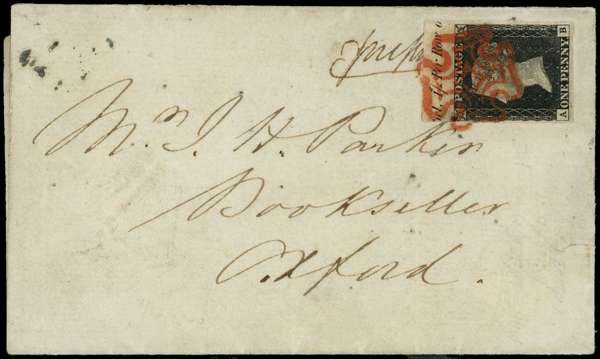 prepa
Mr. J H. Parker
Bookseller
Oxford.
POSTAGE
ONE PENNY
A B